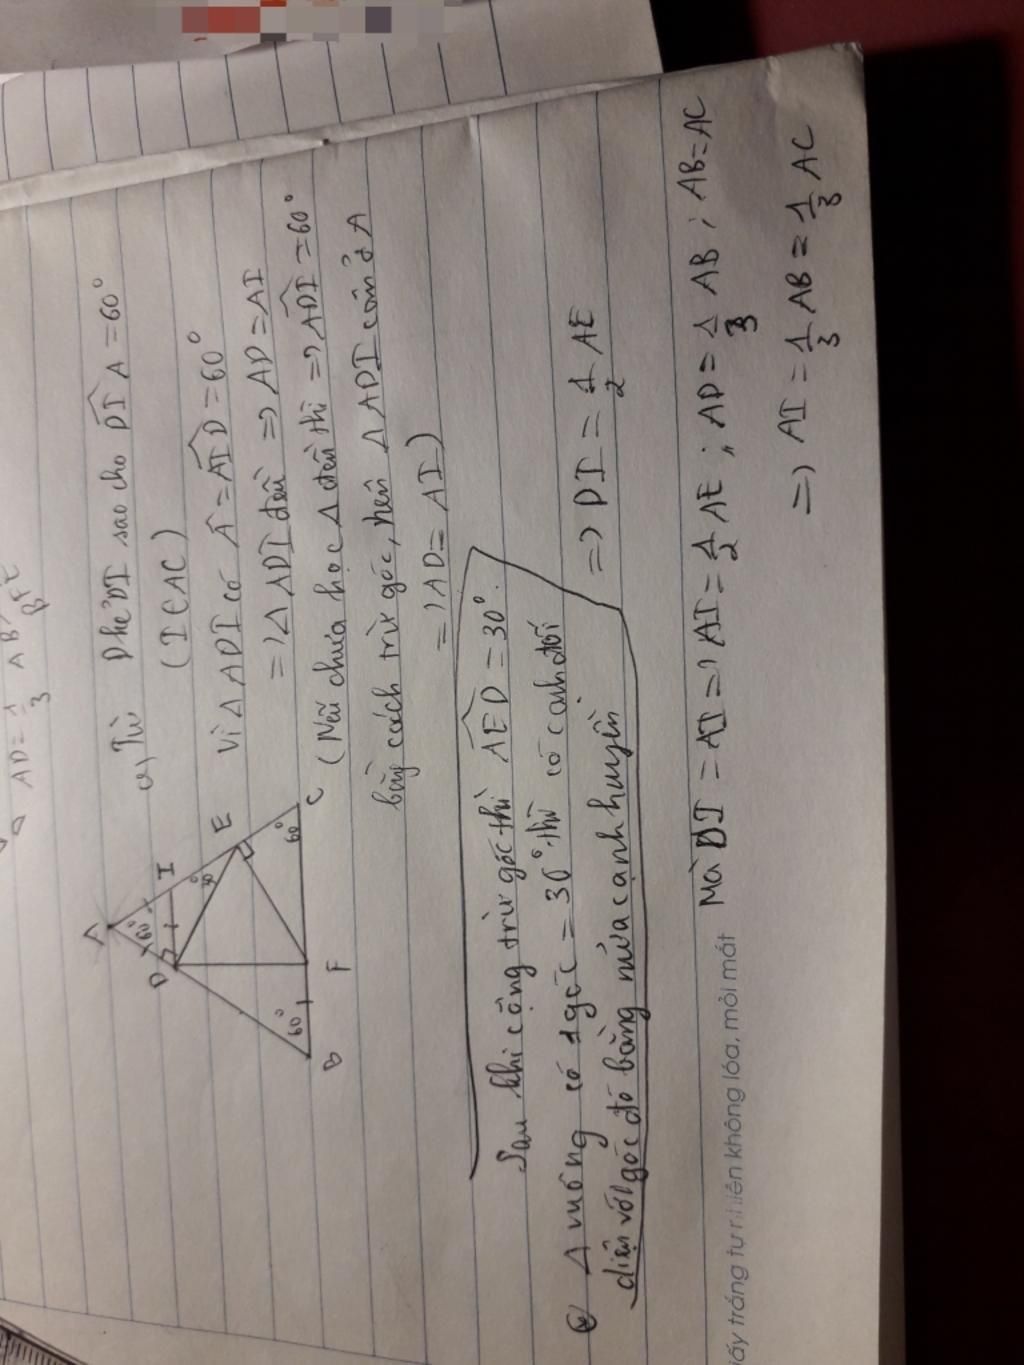 AD = 1/3 AB
a, Từ D kẻ DI sao cho DIA = 60°
(I ∈ AC)
Vì Δ ADI có Â = AID = 60°
=> Δ ADI đều => AD = AI
(Nếu chưa học Δ đều thì => ADI = 60°
bằng cách trừ góc, nên Δ ADI cân ở A
=> AD = AI)
A
60°
D
I
30°
E
60°
60°
B
F
C
Sau khi cộng trừ góc thì AED = 30°.
Δ vuông có 1 góc = 30° thì có cạnh đối
diện với góc đó bằng nửa cạnh huyền
=> DI = 1/2 AE
Mà DI = AI => AI = 1/2 AE ; AD = 1/3 AB ; AB = AC
=> AI = 1/3 AB = 1/3 AC
giấy trắng tự nhiên không lóa, mỏi mắt